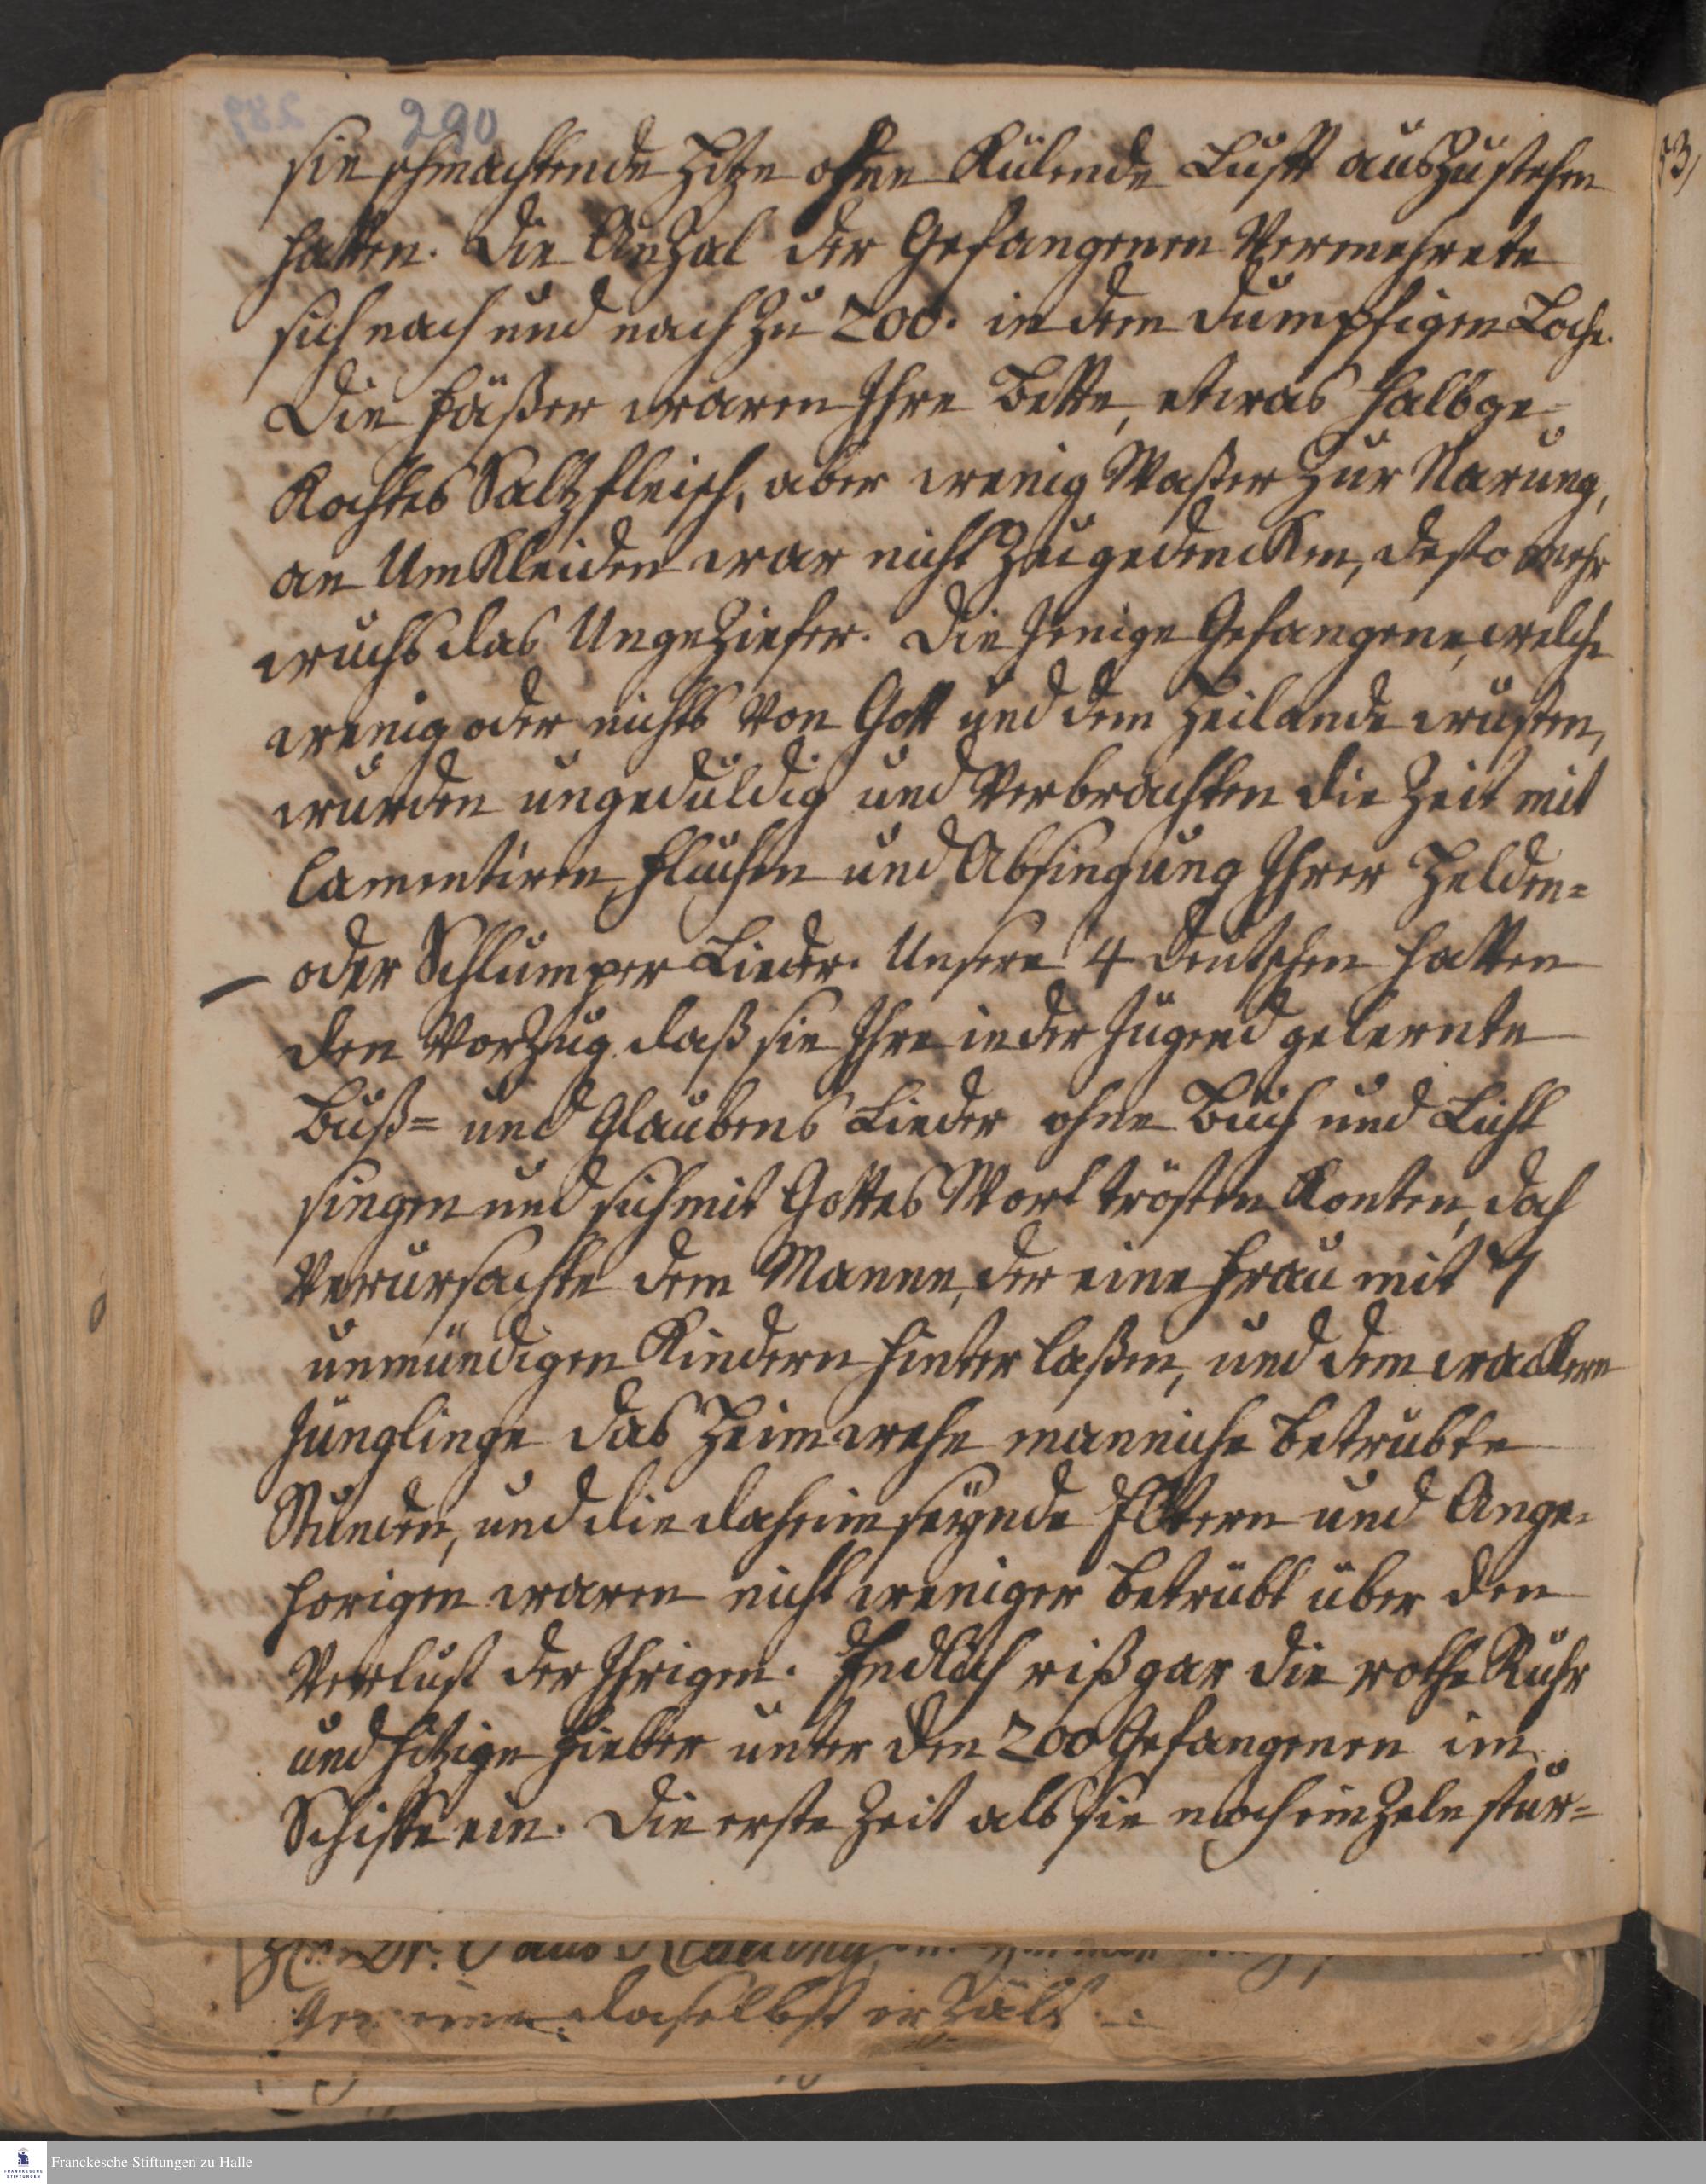 290
sie schmachtende Hitze ohne Külende Lufft auszustehen
hatten. Die Anzal der Gefangenen Vermehrete
sich nach und nach zu 200. in dem dumpfigen Loche.
Die Fäßer waren Ihre Bette, etwas halbge-
Kochtes Saltzfleisch, aber wenig Waßer zur Narung,
an UmKleiden war nicht zu gedencken, desto mehr
wuchs das Ungeziefer. Die Jenige Gefangene, welche
wenig oder nichts von Gott und dem Heilande wusten,
wurden ungeduldig und Verbrachten die Zeit mit
Lamentiren, Fluchen und Absingung Ihrer Helden-
oder Schlumper Lieder. Unsere 4 Deutschen hatten
den Vorzug daß sie Ihre in der Jugend gelernte
Buß- und Glaubens Lieder ohne Buch und Licht
singen und sich mit Gottes Wort trösten Konten, doch
Verursachte dem Manne, der eine Frau mit 7
unmündigen Kindern hinterlaßen, und dem wackern
Jünglinge das Heimwehe manniche betrübte
Stunden, und die daheim seÿnde Eltern und Ange-
horigen waren nicht weniger betrübt über den
Verlust der Ihrigen. Endlich riß gar die rothe Ruhr
und hitzige Fieber unter den 200 Gefangenen im
Schiffe ein. Die erste Zeit als sie noch einzeln stur-
daselbst erzält
Franckesche Stiftungen zu Halle